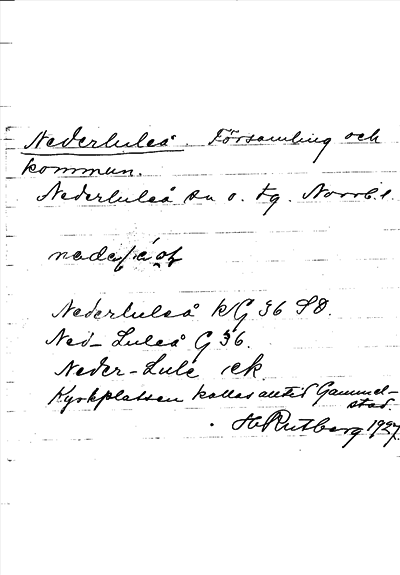 Nederluleå. Församling och
kommun.
Nederluleå sn o. tg. Norrb. l.
Nederluleå k/G 36 SO.
Ned- Luleå G 36.
Neder-Lule ck.
Kyrkplatsen kallas alltid Gammel-
stad.
H. Rutberg 1927.